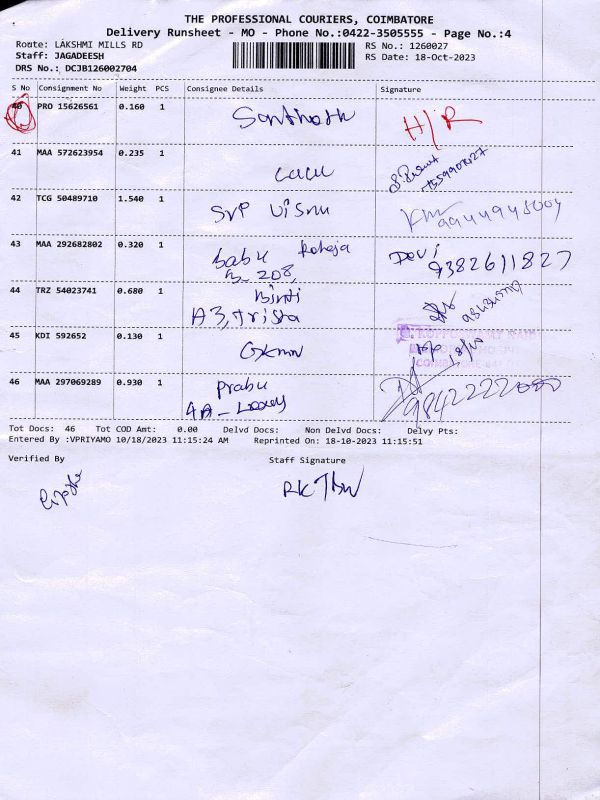 THE PROFESSIONAL COURIERS, COIMBATORE
Delivery Runsheet - MO - Phone No.:0422-3505555 - Page No.:4
Route: LAKSHMI MILLS RD RS No.: 1260027
Staff: JAGADEESH RS Date: 18-Oct-2023
DRS No.: DCJB126002704
S No Consignment No Weight PCS Consignee Details Signature
40 PRO 15626561 0.160 1 Santhosh H/R
41 MAA 572623954 0.235 1
42 TCG 50489710 1.540 1 Srp Visnu
43 MAA 292682802 0.320 1 Babu Raheja Devi
B-208, 9382611827
44 TRZ 54023741 0.680 1 Binti
A3, Trista
45 KDI 592652 0.130 1
46 MAA 297069289 0.930 1 Prabu
4A- 9842222000
Tot Docs: 46 Tot COD Amt: 0.00 Delvd Docs: Non Delvd Docs: Delvy Pts:
Entered By :VPRIYAMO 10/18/2023 11:15:24 AM Reprinted On: 18-10-2023 11:15:51
Verified By Staff Signature